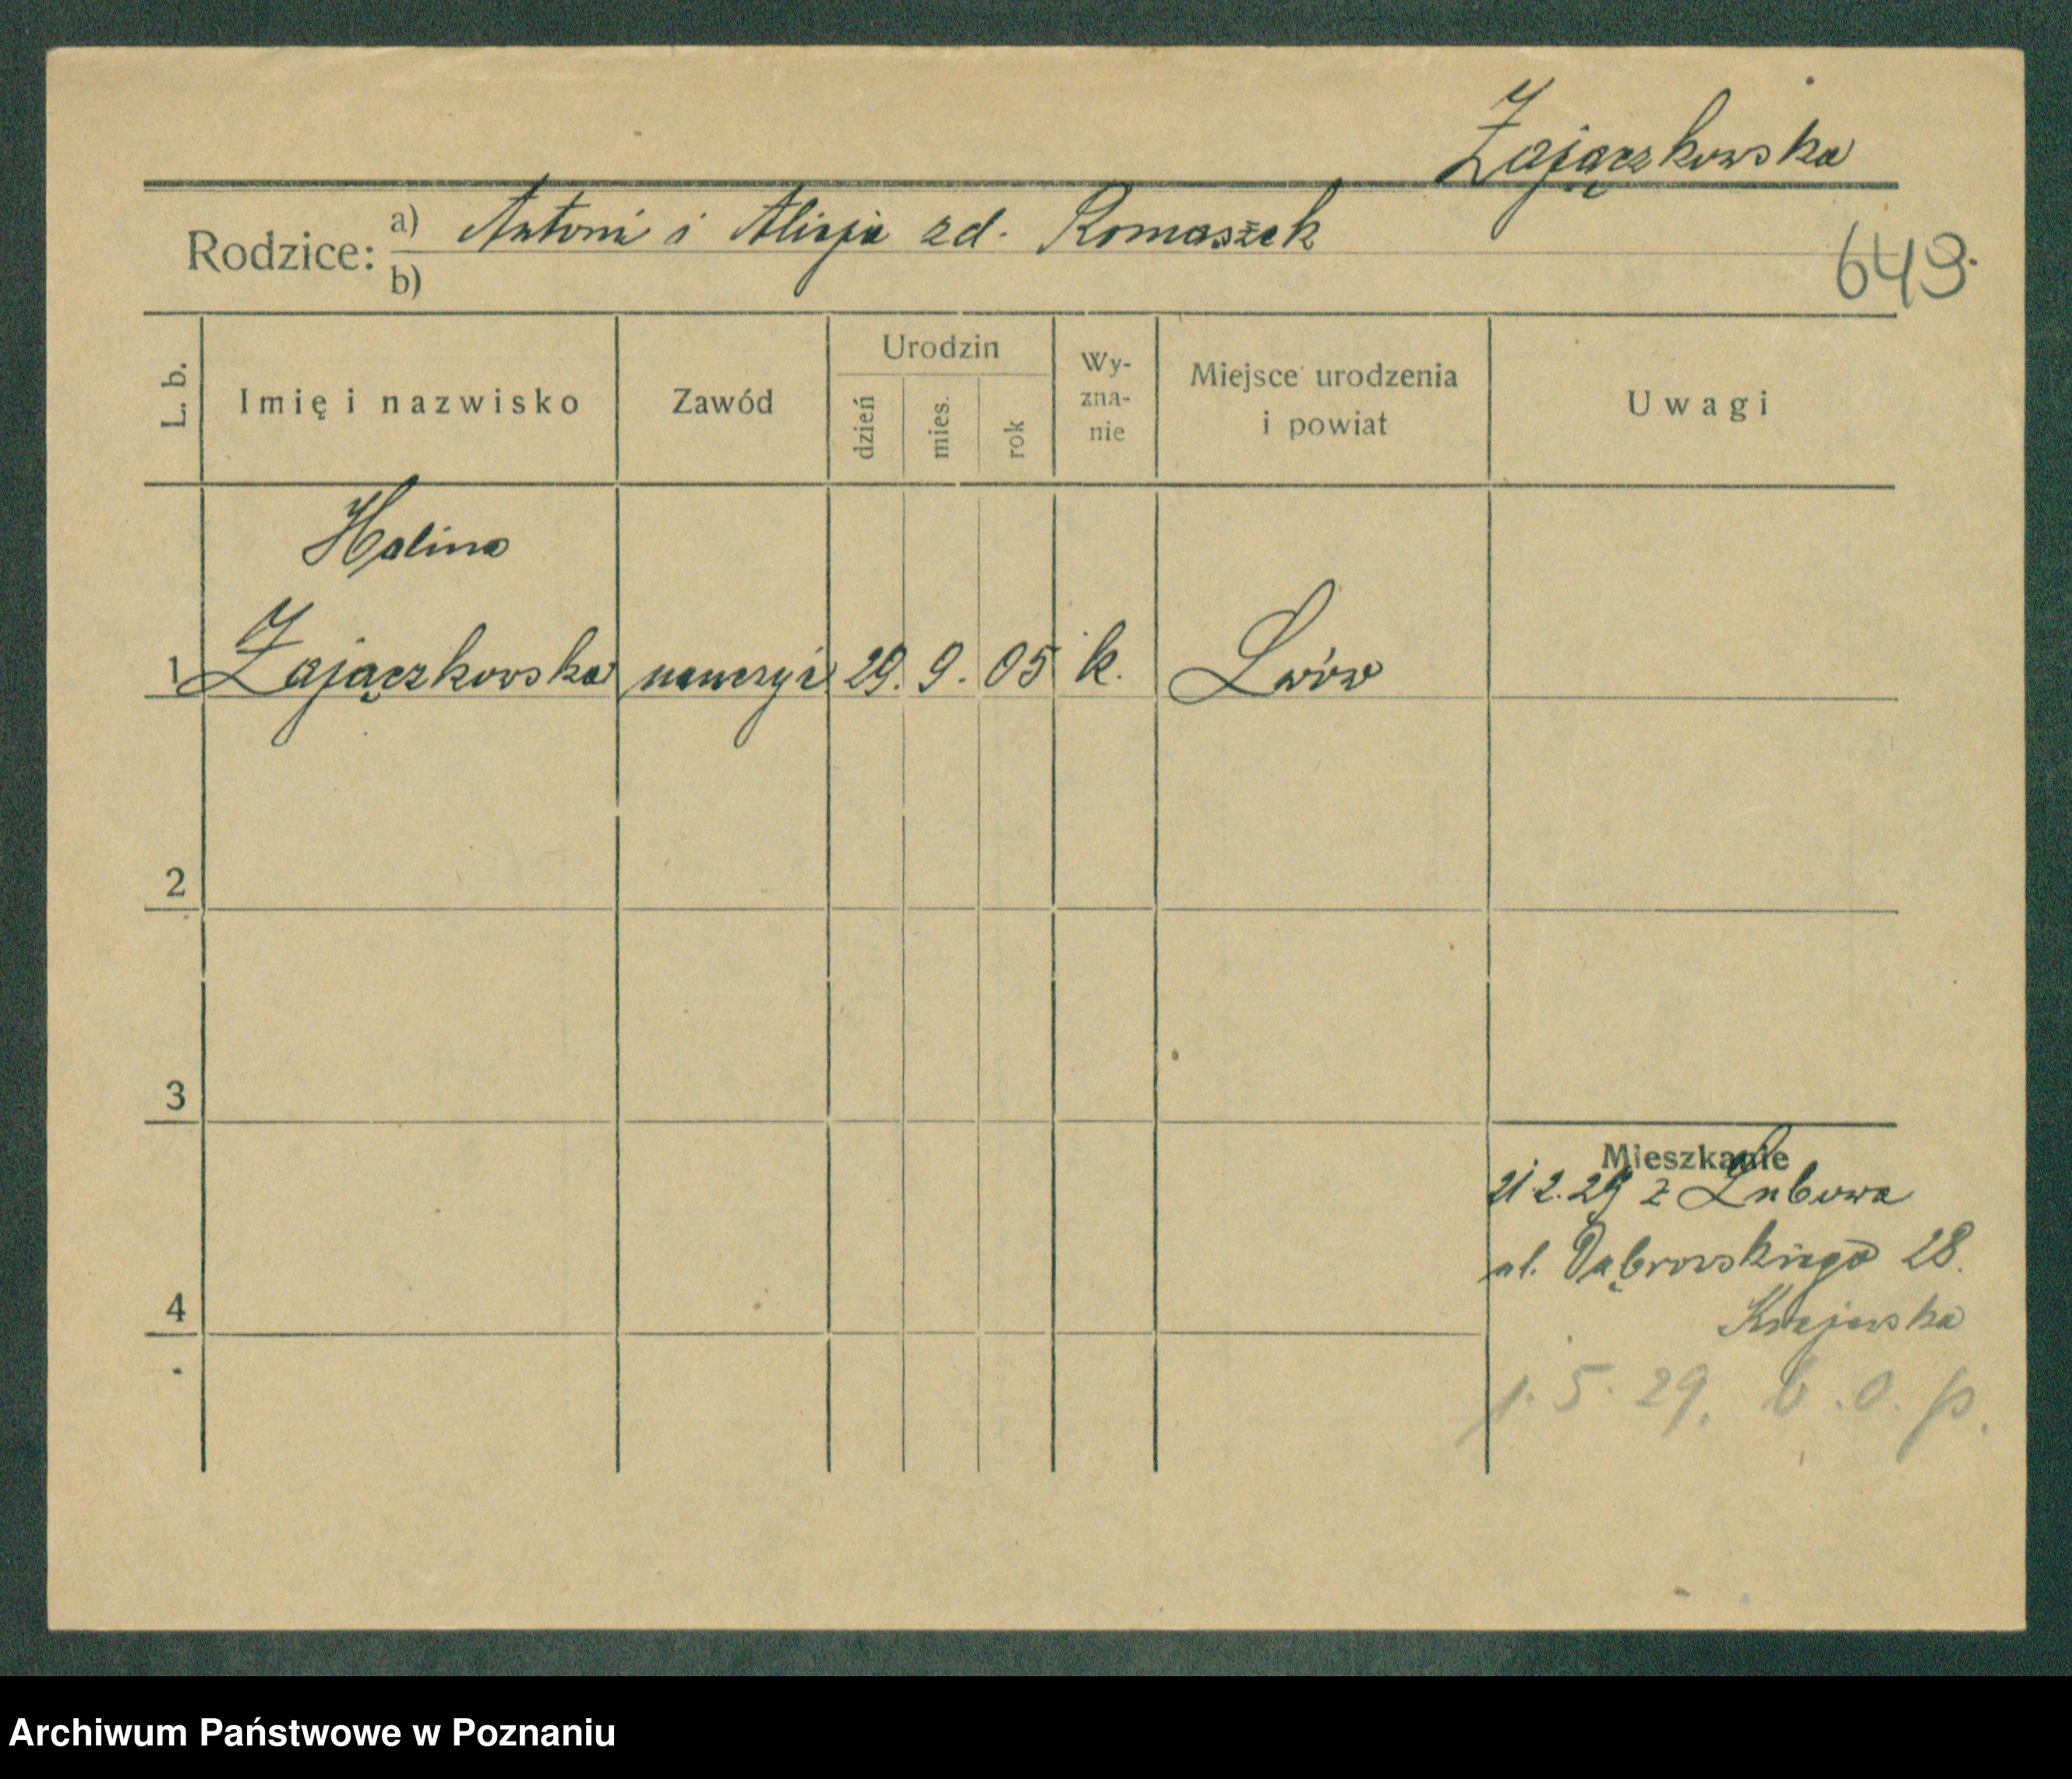 Zajączkowska
Rodzice: a) Antoni i Alicja zd. Romaszek
b)
649.
L. b. Imię i nazwisko Zawód Urodzin dzień mies. rok Wy-zna-nie Miejsce urodzenia i powiat Uwagi
Halina
1 Zajączkowska nauczyc 29. 9. 05 k. Lwów
2
3
Mieszkanie
21.2.29 z Łubowa
ul. Dąbrowskiego 28.
Krajewska
4
1.5.29. b.o.p.
Archiwum Państwowe w Poznaniu